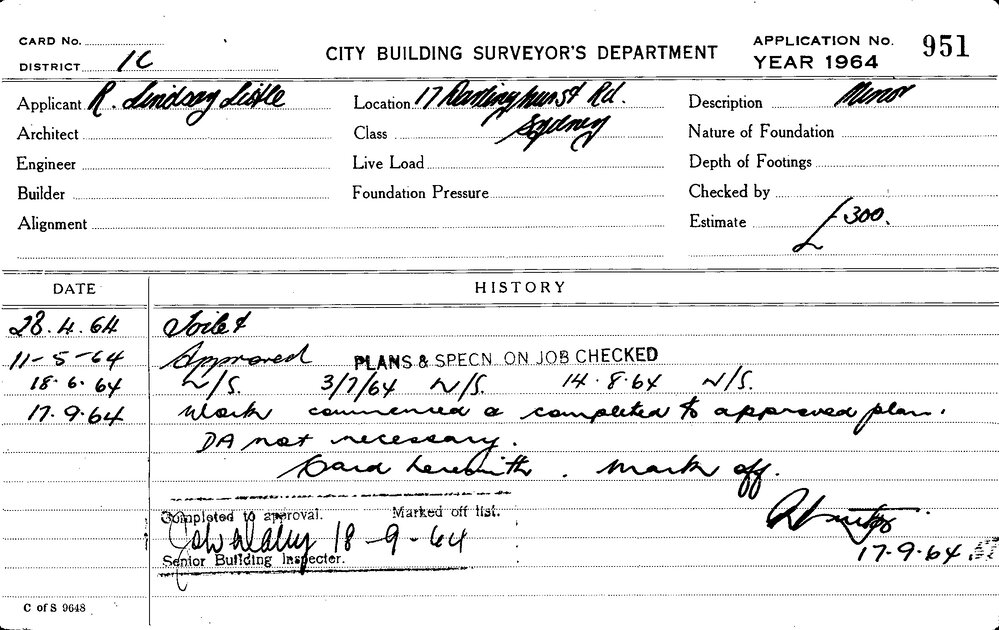 CARD No.
DISTRICT 1C
CITY BUILDING SURVEYOR'S DEPARTMENT
APPLICATION No. 951
YEAR 1964
Applicant R. Lindsay Little
Location 17 Darlinghurst Rd. Sydney
Description Minor
Architect
Class
Nature of Foundation
Engineer
Live Load
Depth of Footings
Builder
Foundation Pressure
Checked by
Alignment
Estimate £300.
DATE HISTORY
28.4.64 Toilet
11-5-64 Approved PLANS & SPECN. ON JOB CHECKED
18.6.64 N/S. 3/7/64 N/S. 14.8.64 N/S.
17.9.64 Work commenced & completed to approved plan.
DA not necessary.
Card herewith. Mark off.
Completed to approval. Marked off list.
18-9-64
Senior Building Inspector.
17.9.64
C of S 9648